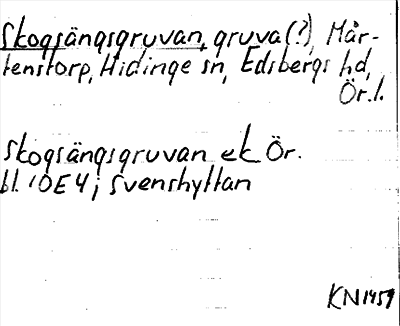 Skogsängsgruvan, gruva(?), Mår-
tenstorp, Hidinge sn, Edsbergs hd,
Ör.l.
Skogsängsgruvan ek Ör.
bl. 10E4; Svenshyttan
KN1959